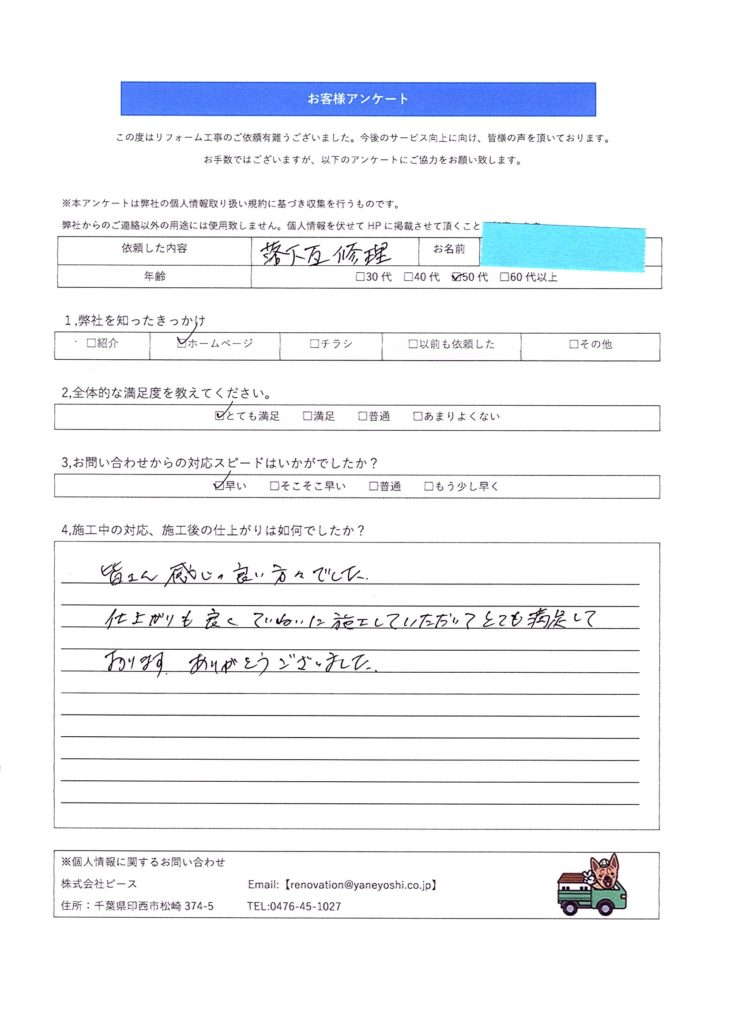 お客様アンケート
この度はリフォーム工事のご依頼有難うございました。今後のサービス向上に向け、皆様の声を頂いております。
お手数ではございますが、以下のアンケートにご協力をお願い致します。
※本アンケートは弊社の個人情報取り扱い規約に基づき収集を行うものです。
弊社からのご連絡以外の用途には使用致しません。個人情報を伏せて HP に掲載させて頂くこと
依頼した内容 落下瓦修理 お名前
年齢 □30 代 □40 代 ☑50 代 □60 代以上
1,弊社を知ったきっかけ
□紹介 ☑ホームページ □チラシ □以前も依頼した □その他
2,全体的な満足度を教えてください。
☑とても満足 □満足 □普通 □あまりよくない
3,お問い合わせからの対応スピードはいかがでしたか？
☑早い □そこそこ早い □普通 □もう少し早く
4,施工中の対応、施工後の仕上がりは如何でしたか？
皆さん 感じの良い方々でした。
仕上がりも良く ていねいに施工していただいてとても満足して
おります。ありがとうございました。
※個人情報に関するお問い合わせ
株式会社ピース Email:【renovation@yaneyoshi.co.jp】
住所：千葉県印西市松崎 374-5 TEL:0476-45-1027